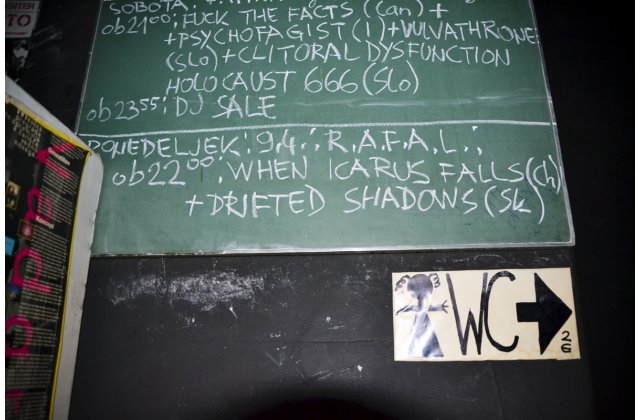 SOBOTA:
ob21⁰⁰: FUCK THE FACTS (Can) +
+PSYCHOFAGIST (I) +VULVATHRONE
(SLO) + CLITORAL DYSFUNCTION
HOLOCAUST 666 (SLO)
ob23⁵⁵: DJ SALE
PONEDELJEK: 9,4.: R,A,F,A,L,:
ob22⁰⁰: WHEN ICARUS FALLS (ch)
+ DRIFTED SHADOWS (Sk)
WC
2€